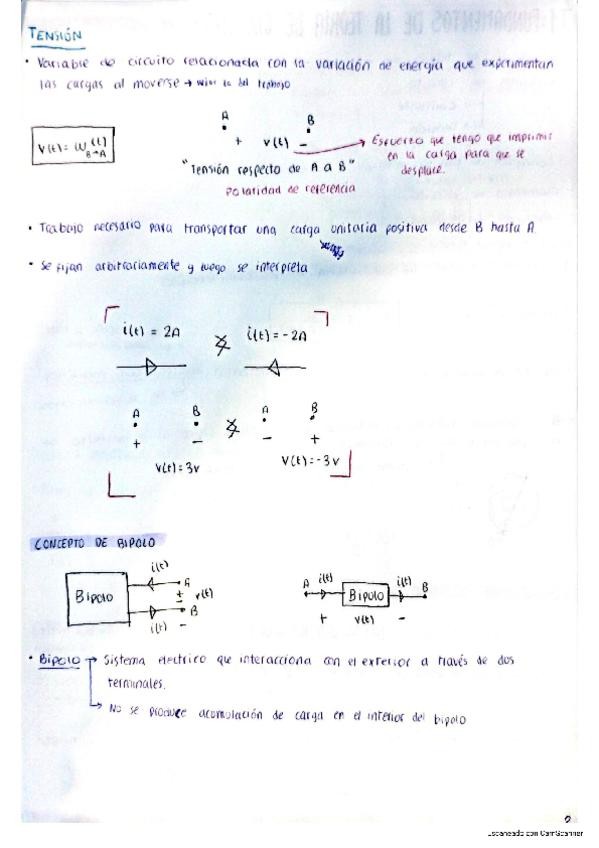 TENSIÓN
• Variable de circuito relacionada con la variación de energía que experimentan
las cargas al moverse → del trabajo
A B
V(t) = W(t) B→A
+ v(t) - → Esfuerzo que tengo que imprimir
en la carga para que se
desplace.
"Tensión respecto de A a B"
Polaridad de referencia
• Trabajo necesario para transportar una carga unitaria positiva desde B hasta A
• Se fijan arbitrariamente y luego se interpreta
i(t) = 2A i(t) = -2A
A B A B
+ - - +
V(t) = 3v V(t) = -3v
CONCEPTO DE BIPOLO
i(t) A + v(t)
Bipolo
B
i(t) -
A i(t) Bipolo i(t) B
+ v(t) -
• Bipolo → Sistema eléctrico que interacciona con el exterior a través de dos
terminales.
→ No se produce acomolación de carga en el interior del bipolo
Escaneado con CamScanner